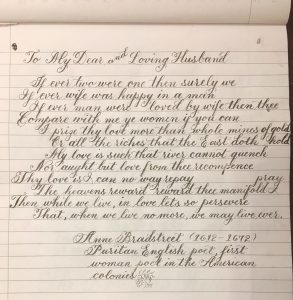 To My Dear and Loving Husband
If ever two were one then surely we
If ever wife was happy in a man
If ever man were loved by wife then thee
Compare with me ye women if you can
I prize thy love more than whole mines of gold
Or all the riches that the East doth hold
My love is such that river cannot quench
Nor aught but love from thee recompence
Thy love is I can no way repay pray
The heavens reward reward thee manifold I
Then while we live, in love lets so persevere
That, when we live no more, we may live ever.
Anne Bradstreet (1612-1672)
Puritan English poet, first
woman poet in the American
colonies